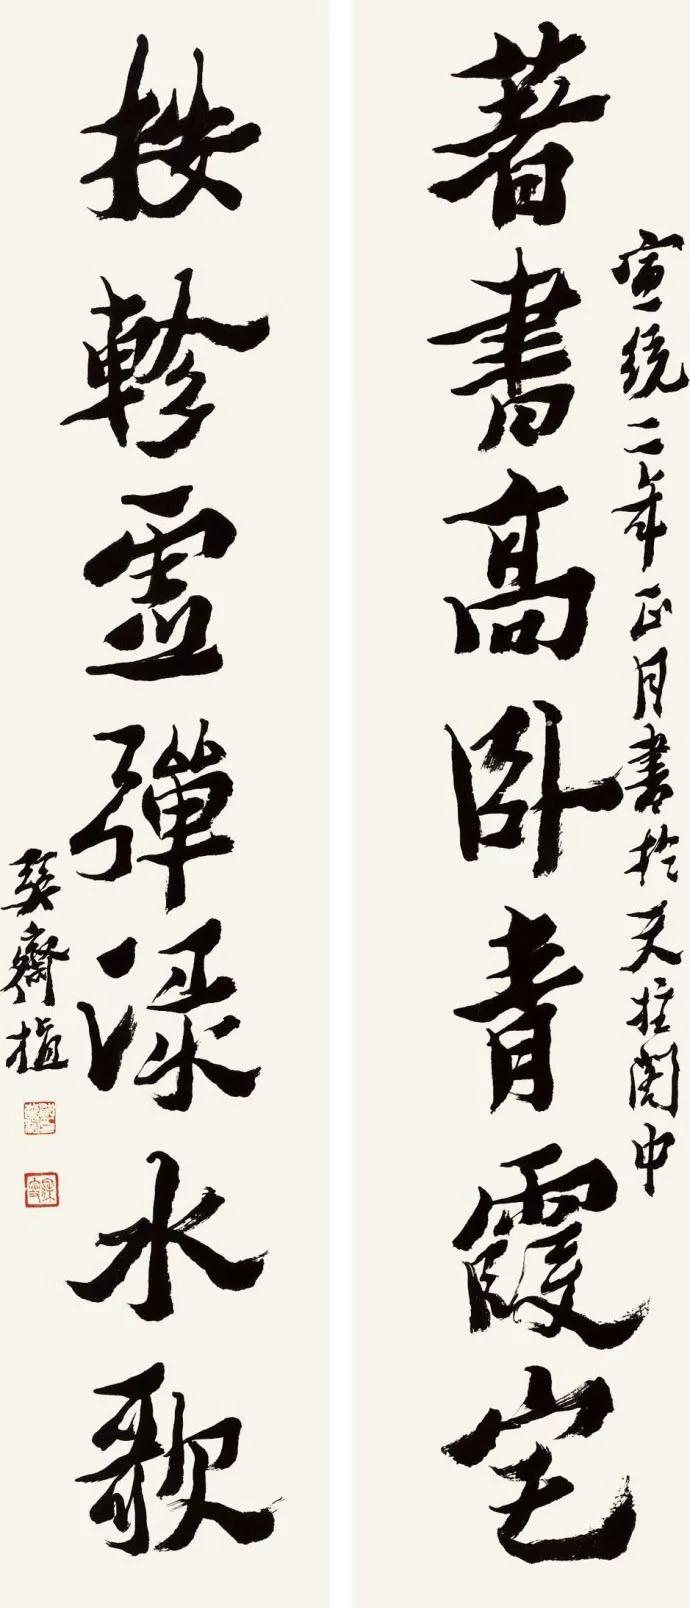 宣統二年正月書於天柱閣中
著書高卧青霞宅
按軫霊彈淥水歌
巽齋植